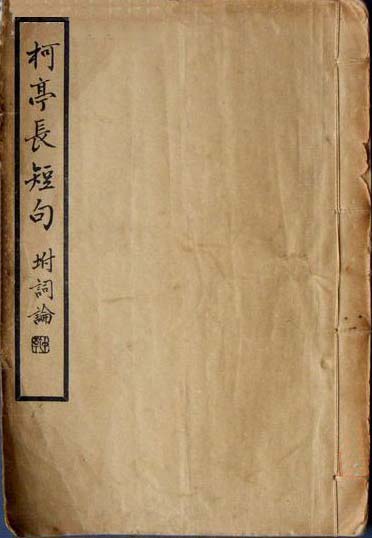 柯亭長短句
坿詞論